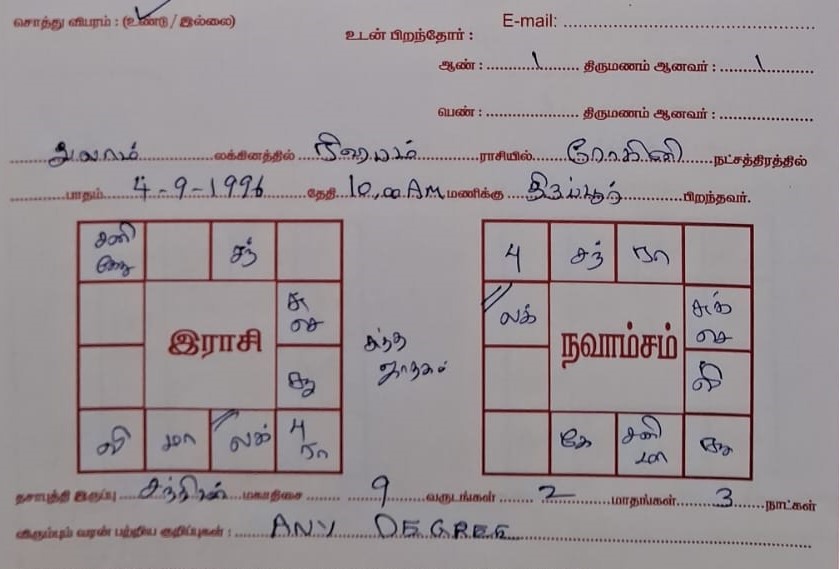 சொத்து விபரம் : (உண்டு / இல்லை)
E-mail:
உடன் பிறந்தோர் :
ஆண் : 1 திருமணம் ஆனவர் : 1
பெண் : திருமணம் ஆனவர் :
துலாம் லக்கினத்தில் ரிஷபம் ராசியில் ரோகினி நட்சத்திரத்தில்
பாதம் 4-9-1996 தேதி 10,00 AM மணிக்கு திருப்பூர் பிறந்தவர்.
சனி சந் 4 சந் ரா
கே
சு லக் சுக்
செ செ
இராசி சுத்த ஜாதகம் நவாம்சம்
சூ வி
வி மா லக் 4 கே சனி சூ
ரா மா
தசாபுத்தி இருப்பு சந்திரன் மகாதிசை 9 வருடங்கள் 2 மாதங்கள் 3 நாட்கள்
விரும்பும் வரன் பற்றிய குறிப்புகள் : ANY DEGREE